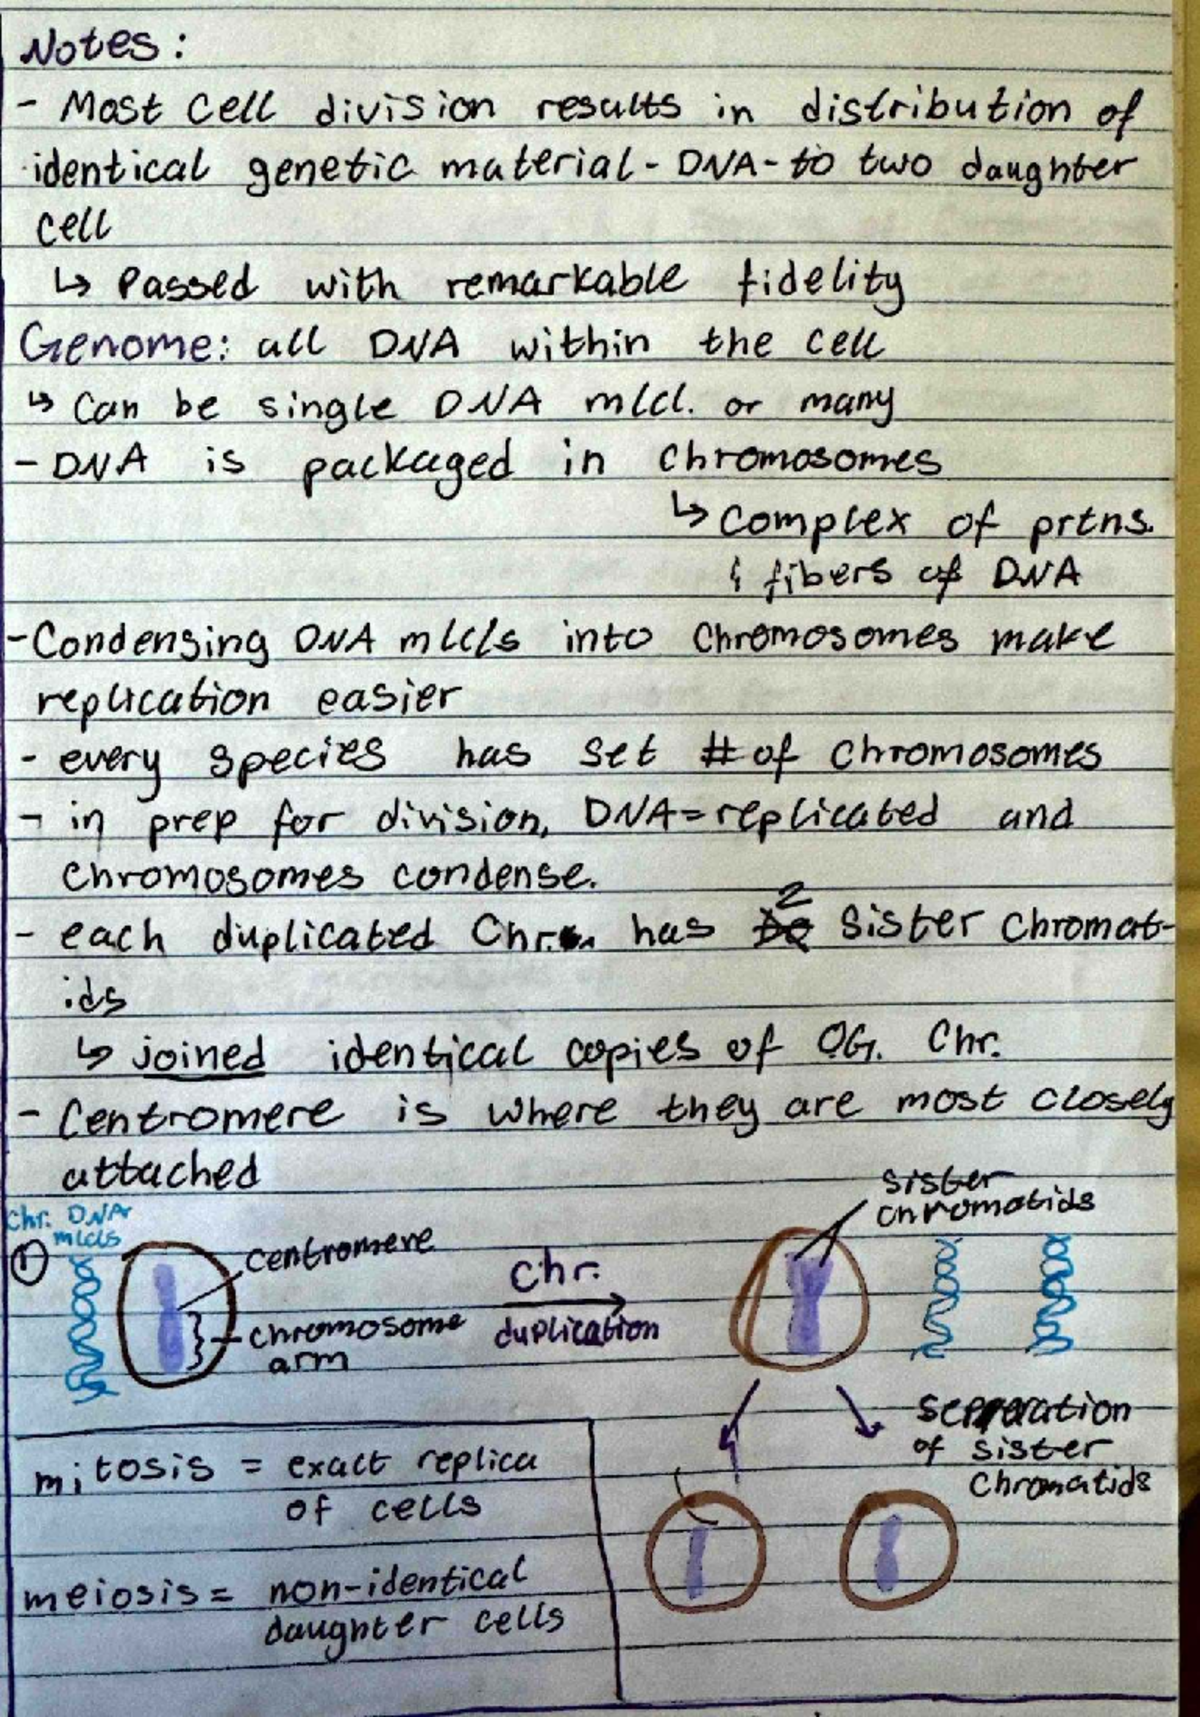 Notes:
- Most cell division results in distribution of
identical genetic material - DNA - to two daughter
cell
↳ Passed with remarkable fidelity
Genome: all DNA within the cell
↳ Can be single DNA mlcl. or many
- DNA is packaged in chromosomes
↳ complex of prtns.
& fibers of DNA
- Condensing DNA mlcls into chromosomes make
replication easier
- every species has set # of chromosomes
- in prep for division, DNA = replicated and
chromosomes condense.
- each duplicated Chr. has 2 sister chromat-
ids
↳ joined identical copies of OG. Chr.
- Centromere is where they are most closely
attached
Chr. DNA
mlcls
①
centromere
chromosome
arm
Chr.
duplication
sister
chromatids
separation
of sister
chromatids
mitosis = exact replica
of cells
meiosis = non-identical
daughter cells